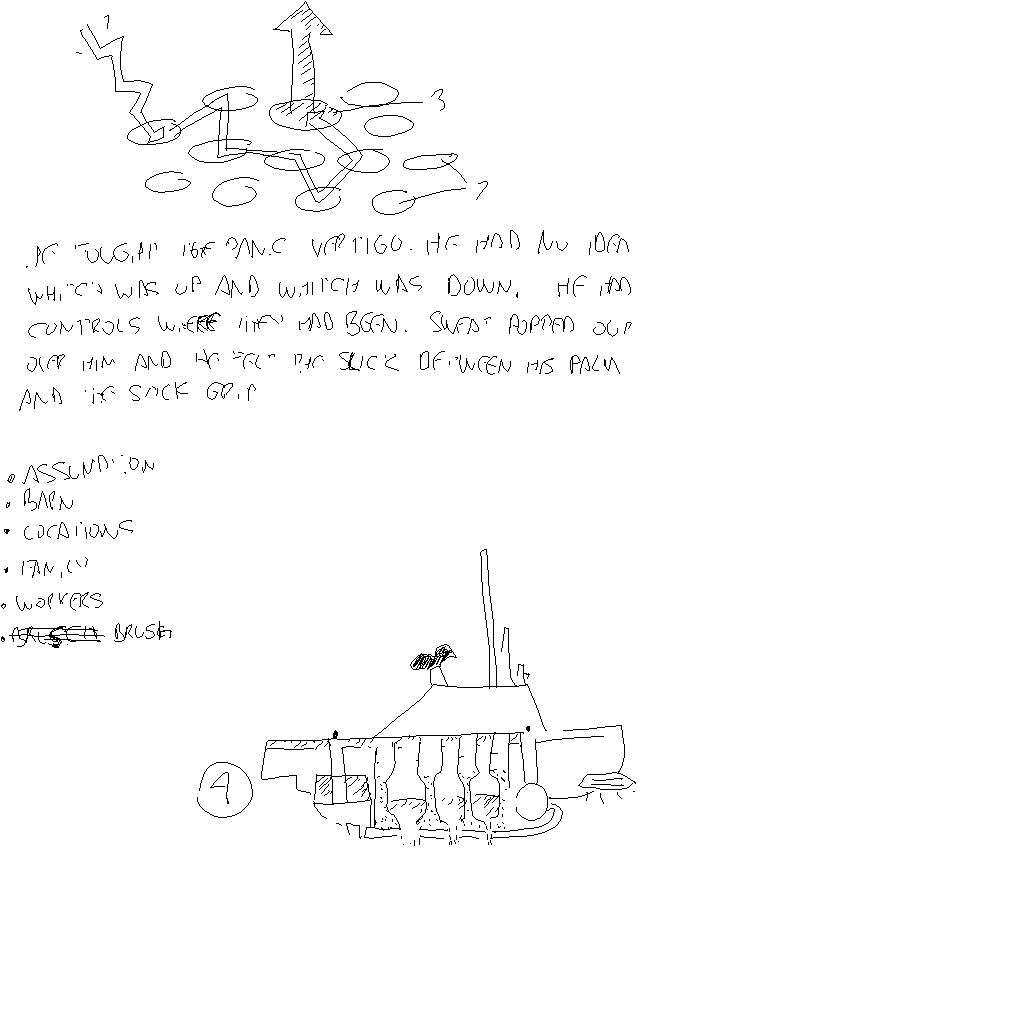 1
3
2
HE FOUGHT THE PANIC VERTIGO. HE HAD NO IDEA
WHICH WAS UP AND WHITCH WAS DOWN. HE HAD
CONTROLS WHERE THEY HAD BEEN. SWEAT POPPED OUP
OVER HIM AND HE FELT THE SLICK BETWEEN HIS PALM
AND THE STICK GRIP
• BARN
• LOCATIONS
• FAMILY
• WORKERS
• BRUSH